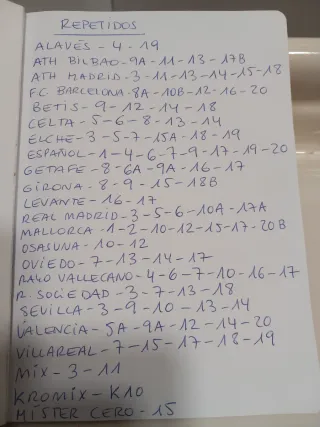 REPETIDOS
ALAVÉS - 4 - 19
ATH BILBAO - 9A - 11 - 13 - 17B
ATH MADRID - 3 - 11 - 13 - 14 - 15 - 18
F.C. BARCELONA - 8A - 10B - 12 - 16 - 20
BETIS - 9 - 12 - 14 - 18
CELTA - 5 - 6 - 8 - 13 - 14
ELCHE - 3 - 5 - 7 - 15A - 18 - 19
ESPAÑOL - 1 - 4 - 6 - 7 - 9 - 17 - 19 - 20
GETAFE - 8 - 6A - 9A - 16 - 17
GIRONA - 8 - 9 - 15 - 18B
LEVANTE - 16 - 17
REAL MADRID - 3 - 5 - 6 - 10A - 17A
MALLORCA - 1 - 2 - 10 - 12 - 15 - 17 - 20B
OSASUNA - 10 - 12
OVIEDO - 7 - 13 - 14 - 17
RAYO VALLECANO - 4 - 6 - 7 - 10 - 16 - 17
R. SOCIEDAD - 3 - 7 - 13 - 18
SEVILLA - 3 - 9 - 10 - 13 - 14
VALENCIA - 5A - 9A - 12 - 14 - 20
VILLAREAL - 7 - 15 - 17 - 18 - 19
MIX - 3 - 11
KROMIX - K10
MÍSTER CERO - 15